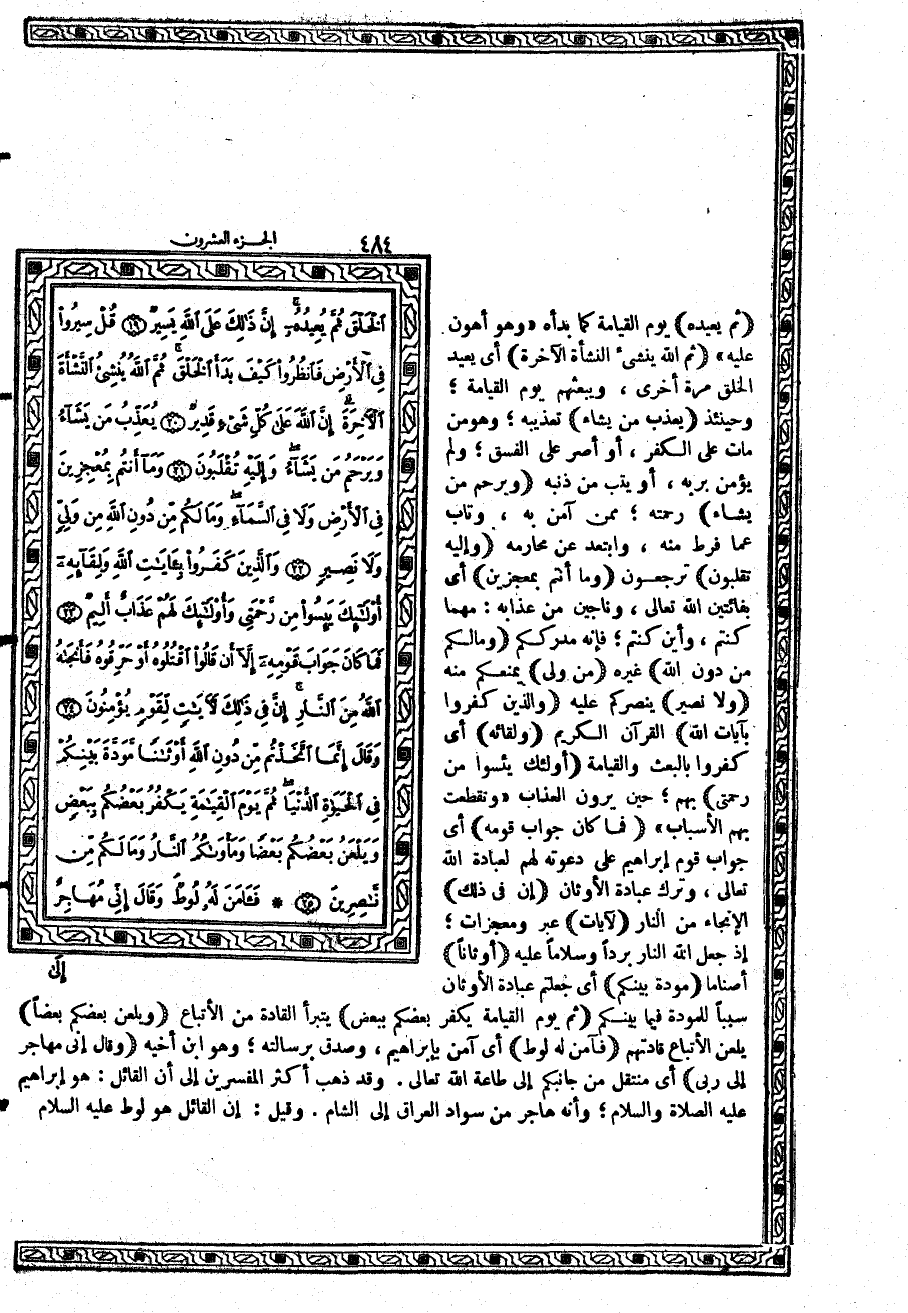 ٤٨٤ الجزء العشرون
ٱلْخَلْقَ ثُمَّ يُعِيدُهُۥٓ ۚ إِنَّ ذَٰلِكَ عَلَى ٱللَّهِ يَسِيرٌ ﴿١٩﴾ قُلْ سِيرُوا۟
فِى ٱلْأَرْضِ فَٱنظُرُوا۟ كَيْفَ بَدَأَ ٱلْخَلْقَ ۚ ثُمَّ ٱللَّهُ يُنشِئُ ٱلنَّشْأَةَ
ٱلْأَخِرَةَ ۚ إِنَّ ٱللَّهَ عَلَىٰ كُلِّ شَىْءٍ قَدِيرٌ ﴿٢٠﴾ يُعَذِّبُ مَن يَشَآءُ
وَيَرْحَمُ مَن يَشَآءُ ۖ وَإِلَيْهِ تُقْلَبُونَ ﴿٢١﴾ وَمَآ أَنتُم بِمُعْجِزِينَ
فِى ٱلْأَرْضِ وَلَا فِى ٱلسَّمَآءِ ۖ وَمَا لَكُم مِّن دُونِ ٱللَّهِ مِن وَلِىٍّ
وَلَا نَصِيرٍ ﴿٢٢﴾ وَٱلَّذِينَ كَفَرُوا۟ بِـَٔايَـٰتِ ٱللَّهِ وَلِقَآئِهِۦٓ
أُو۟لَـٰٓئِكَ يَئِسُوا۟ مِن رَّحْمَتِى وَأُو۟لَـٰٓئِكَ لَهُمْ عَذَابٌ أَلِيمٌ ﴿٢٣﴾
فَمَا كَانَ جَوَابَ قَوْمِهِۦٓ إِلَّآ أَن قَالُوا۟ ٱقْتُلُوهُ أَوْ حَرِّقُوهُ فَأَنجَىٰهُ
ٱللَّهُ مِنَ ٱلنَّارِ ۚ إِنَّ فِى ذَٰلِكَ لَأَيَـٰتٍ لِّقَوْمٍ يُؤْمِنُونَ ﴿٢٤﴾
وَقَالَ إِنَّمَا ٱتَّخَذْتُم مِّن دُونِ ٱللَّهِ أَوْثَـٰنًا مَّوَدَّةَ بَيْنِكُمْ
فِى ٱلْحَيَوٰةِ ٱلدُّنْيَا ۖ ثُمَّ يَوْمَ ٱلْقِيَـٰمَةِ يَكْفُرُ بَعْضُكُم بِبَعْضٍ
وَيَلْعَنُ بَعْضُكُم بَعْضًا وَمَأْوَىٰكُمُ ٱلنَّارُ وَمَا لَكُم مِّن
نَّـٰصِرِينَ ﴿٢٥﴾ * فَـَٔامَنَ لَهُۥ لُوطٌ ۘ وَقَالَ إِنِّى مُهَاجِرٌ
إِلَىٰ
(ثم يعيده) يوم القيامة كما بدأه «وهو أهون
عليه» (ثم الله ينشىء النشأة الآخرة) أى يعيد
الخلق مرة أخرى ، ويبعثهم يوم القيامة ؛
وحينئذ (يعذب من يشاء) تعذيبه ؛ وهو من
مات على الكفر ، أو أصر على الفسق ؛ ولم
يؤمن بربه ، أو يتب من ذنبه (ويرحم من
يشاء) رحمته ؛ ممن آمن به ، وتاب
عما فرط منه ، وابتعد عن محارمه (وإليه
تقلبون) ترجعون (وما أنتم بمعجزين) أى
بفائتين الله تعالى ، وناجين من عذابه : مهما
كنتم ، وأين كنتم ؛ فإنه مدرككم (ومالكم
من دون الله) غيره (من ولى) يمنعكم منه
(ولا نصير) ينصركم عليه (والذين كفروا
بآيات الله) القرآن الكريم (ولقائه) أى
كفروا بالبعث والقيامة (أولئك يئسوا من
رحمتى) بهم ؛ حين يرون العذاب «وتقطعت
بهم الأسباب» (فما كان جواب قومه) أى
جواب قوم إبراهيم على دعوته لهم لعبادة الله
تعالى ، وترك عبادة الأوثان (إن فى ذلك)
الإنجاء من النار (لآيات) عبر ومعجزات ؛
إذ جعل الله النار برداً وسلاماً عليه (أوثاناً)
أصناما (مودة بينكم) أى جعلتم عبادة الأوثان
سبباً للمودة فيما بينكم (ثم يوم القيامة يكفر بعضكم ببعض) يتبرأ القادة من الأتباع (ويلعن بعضكم بعضاً)
يلعن الأتباع قادتهم (فآمن له لوط) أى آمن بإبراهيم ، وصدق برسالته ؛ وهو ابن أخيه (وقال إنى مهاجر
إلى ربى) أى منتقل من جانبكم إلى طاعة الله تعالى . وقد ذهب أكثر المفسرين إلى أن القائل : هو إبراهيم
عليه الصلاة والسلام ؛ وأنه هاجر من سواد العراق إلى الشام . وقيل : إن القائل هو لوط عليه السلام